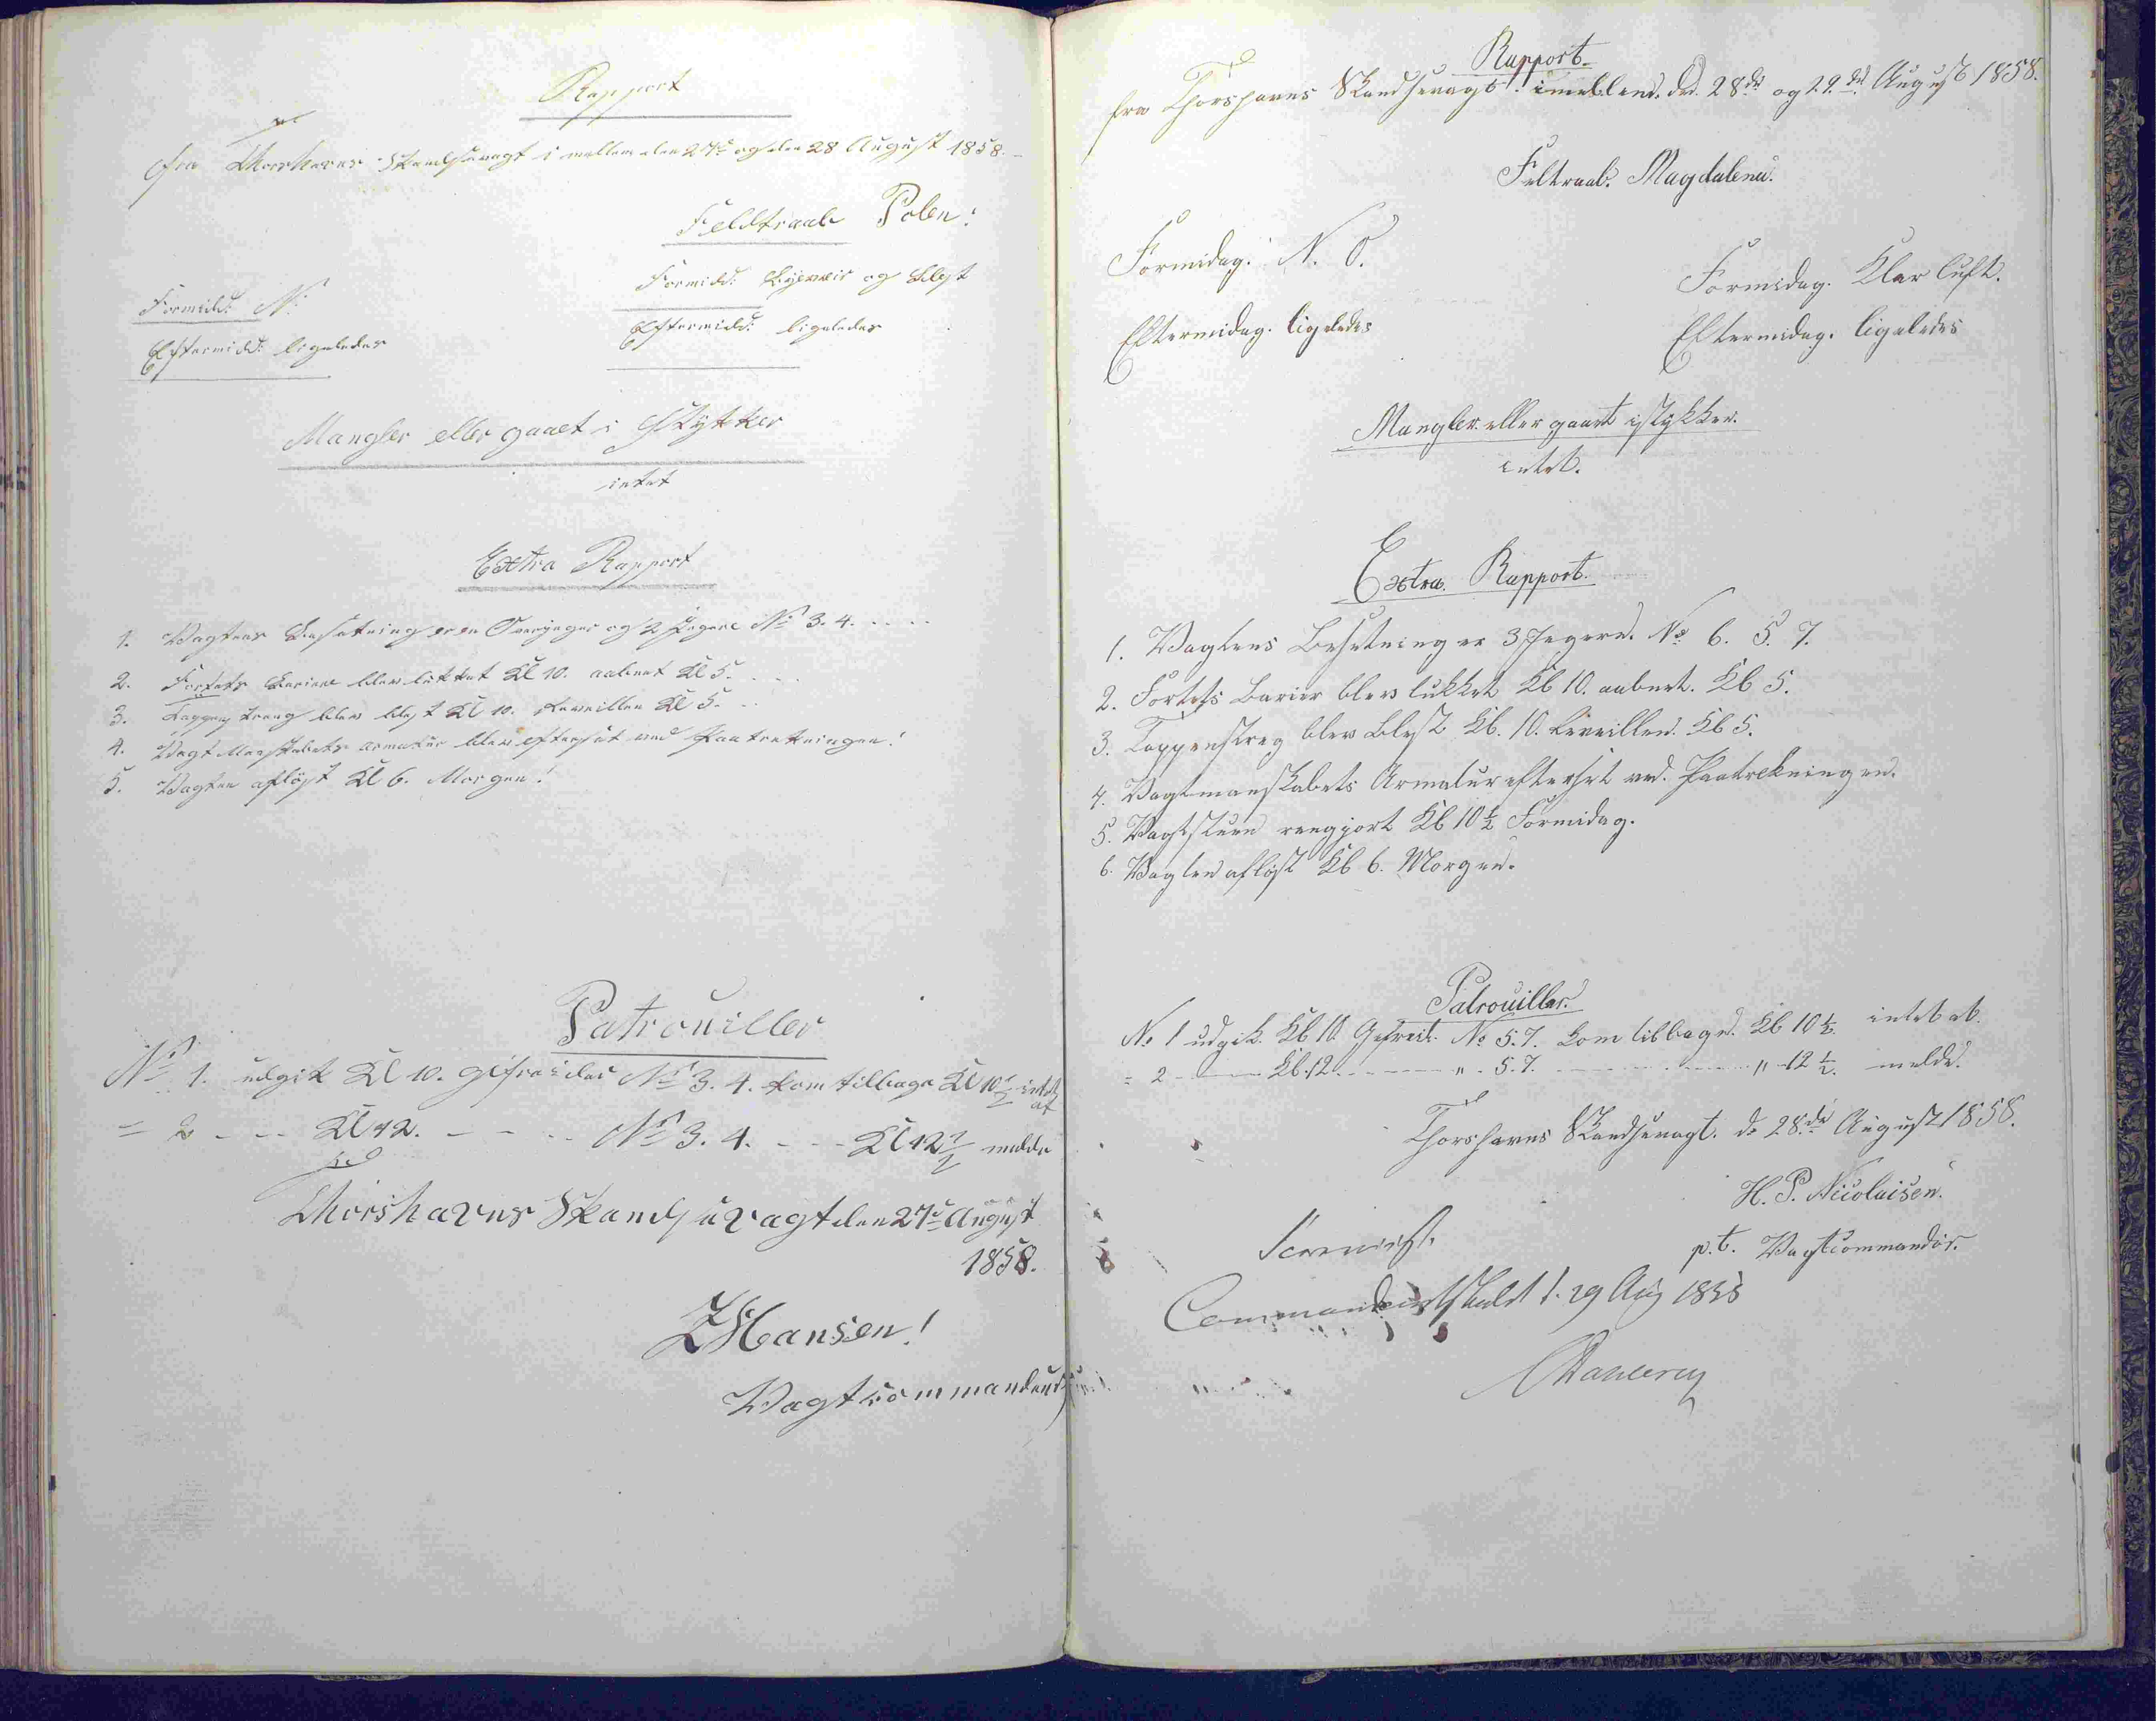 Rapport
fra Thorshavns Skandsevagt i mellem den 27de og den 28 August 1858.
Feldtraab Polen!
Formidd: N:
Eftermidd: ligeledes
Formidd: Byeveir og Blæst
Eftermidd: ligeledes
Mangler eller gaaet i Stykker
intet
Extra Rapport
1. Vagtens Besætning er en Overjæger og 2 Jægere No 3. 4.
2. Fortets Bariere blev lukket Kl 10. aabnet Kl 5.
3. Tappenstreng blev blæst Kl 10. Reveillen Kl 5.
4. Vagt Mandskabets Armatur blev efterset ved Paatrækningen!
5. Vagten afløst Kl 6. Morgen!
Patrouiller
No 1. udgik Kl 10. gefreider No 3. 4. kom tilbage Kl 10 1/2 intet at
= 2 - - - Kl 12. - - - - No 3. 4. - - - Kl 12 1/2 melde
Thorshavns Skandsevagt den 27de August
1858.
Z Hansen!
Vagtcommandeur
Rapport.
fra Thorshavns Skandsevagt. imellem. d. 28de og 29de August 1858.
Feltraab. Magdalena.
Formidag. N. O.
Eftermidag. ligeledes
Formidag. Klar luft.
Eftermidag. ligeledes
Mangler eller gaaet istykker.
intet.
Extra. Rapport.
1. Vagtens Besetning er 3 Jegere. No 6. 5. 7.
2. Fortets Barier blev lukket Kl 10. aabnet. Kl 5.
3. Tappenstreg blev Blæst Kl. 10. Reveillen. Kl 5.
4. Vagtmanskabets Armatur efterset ved. Paatrekningen.
5. Vagtstuen rengjort Kl 10 1/2 Formidag.
6. Vagten afløst Kl 6. Morgen.
Patrouiller.
No 1 udgik. Kl 10 Gefreit. No 5. 7. kom tilbage. Kl 10 1/2. intet at.
= 2 ---- Kl. 12 ---- " . 5. 7. ---- " 12 1/2. melde.
Thorshavns Skandsevagt. d. 28de August 1858.
H. P. Nicolaisen.
p.t. Vagtcommandør.
Commandantskabet d. 29 Aug 1858